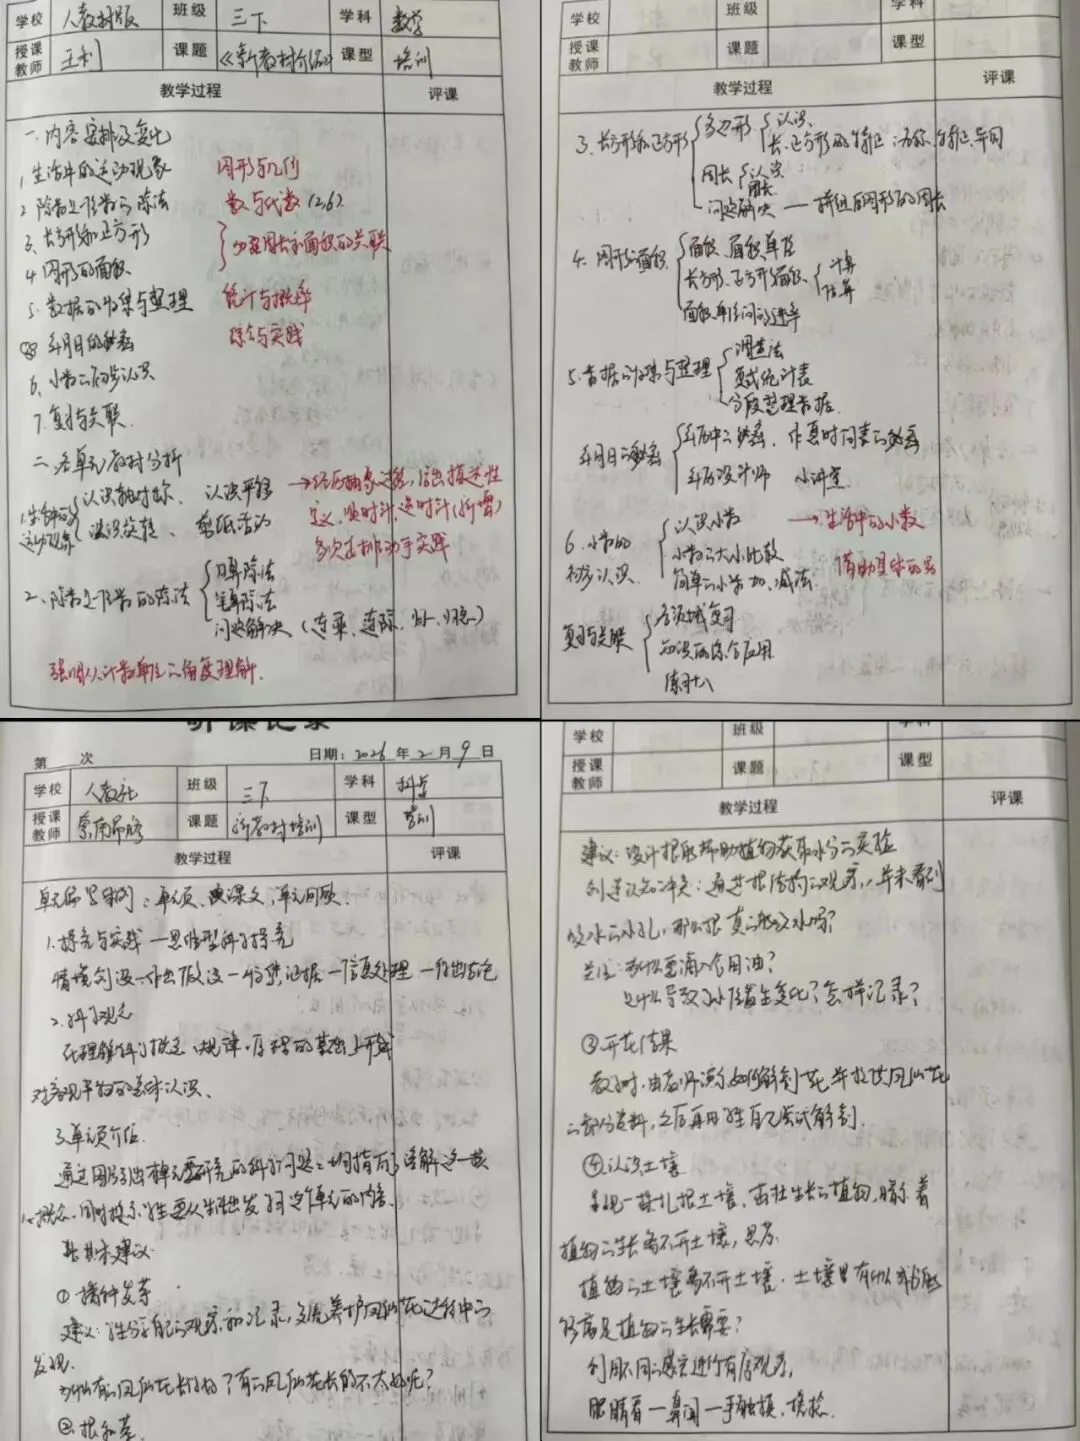 学校 人教材版 班级 三下 学科 数学
授课教师 王利 课题 《新教材介绍》 课型 培训
教学过程 评课
一、内容安排及变化
1. 生活中的运动现象 图形与几何
2. 除数是一位数的除法 数与代数（2,6）
3. 长方形和正方形
4. 图形的面积
加强周长和面积的关联
5. 数据的收集与整理 统计与概率
年月日的秘密 综合与实践
6、小数的初步认识
7. 复习与关联
二、各单元教材分析
1. 生活中的运动现象 认识轴对称、认识平移
认识旋转、剪纸活动
→经历抽象过程,给出描述性
定义,顺时针,逆时针(新增)
多次安排动手实践
2、除数是一位数的除法 口算除法
笔算除法
问题解决（连乘、连除、归一、归总）
强调从计数单位的角度理解.
学校 班级 学科
授课教师 课题 课型
教学过程 评课
3. 长方形和正方形 多边形 认识
长、正方形的特征:名称、特征、异同
周长 认识
周长
问题解决 — 拼组的图形的周长
4. 图形的面积 面积、面积单位
长方形、正方形面积 计算
估算
面积单位间的进率
5. 数据的收集与整理 调查法
复式统计表
分段整理数据
年月日的秘密 年历中的秘密、作息时间表的秘密
年历设计师 小讲堂
6. 小数的初步认识 认识小数 →生活中的小数
小数的大小比较
简单的小数加、减法. 借助具体的量
复习与关联 各领域复习
知识的综合应用
练习十八
听课记录
第 次 日期：2026年2月9日
学校 人教社 班级 三下 学科 科学
授课教师 课题 新教材培训 课型 培训
教学过程 评课
单元编写体例：单元页、课文、单元回顾.
1. 探究与实践 — 思维型科学探究
情境创设—作出假设—收集证据—信息处理—得出结论
2. 科学观念
在理解科学概念、规律、原理的基础上形成
对客观事物的总体认识、
3. 单元页介绍
具体建议
① 播种发芽
建议：学生分享自己的观察和记录,交流养护凤仙花过程中的
发现.
为什么有的凤仙花长得好？有的凤仙花长的不太好呢？
②. 根和茎
学校 班级 学科
授课教师 课题 课型
教学过程 评课
建议：设计根能帮助植物获取水分的实验
创造认知冲突：通过根结构的观察,并未看到
吸水的小孔,那么根真的能吸水吗?
关注：为什么要滴入食用油？
是什么导致了水位发生变化？怎样记录？
③. 开花结果
教学时,由老师演示如何解剖花并提供凤仙花
的部分资料,之后再由学生自己尝试解剖.
④. 认识土壤
呈现一株扎根土壤、茁壮生长的植物,暗示着
植物的生长离不开土壤,思考
植物的土壤离不开土壤. 土壤里有什么成分能
够满足植物的生长需要？
利用不同的感官进行有序观察,
眼睛看—鼻闻—手触摸、揉捻.